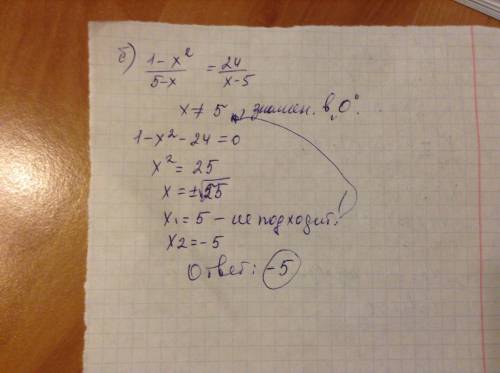 б) 1-x² / 5-x = 24 / x-5
x ≠ 5 знамен. в „0“.
1-x²-24=0
x² = 25
x = ±√25
x₁ = 5 - не подходит!
x2 = -5
Ответ: -5